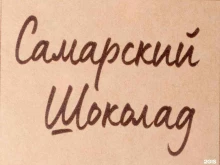 Самарский
Шоколад